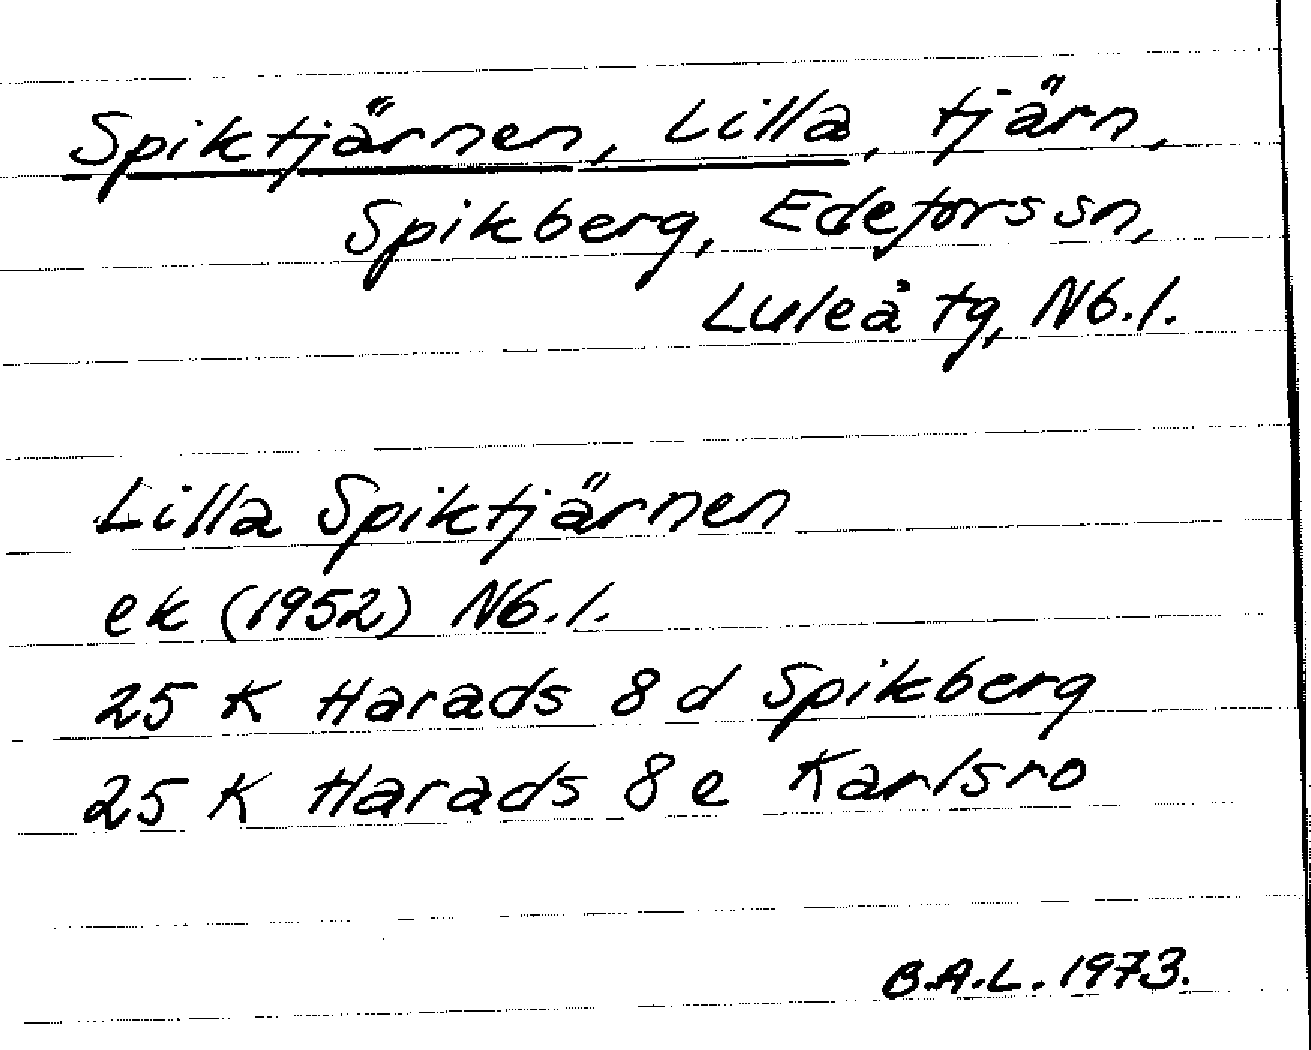 Spiktjärnen, Lilla, tjärn,
Spikberg, Edefors sn,
Luleå tg, Nb.l.
Lilla Spiktjärnen
ek (1952) Nb.l.
25 K Harads 8 d Spikberg
25 K Harads 8 e Karlsro
B.A.L. 1973.